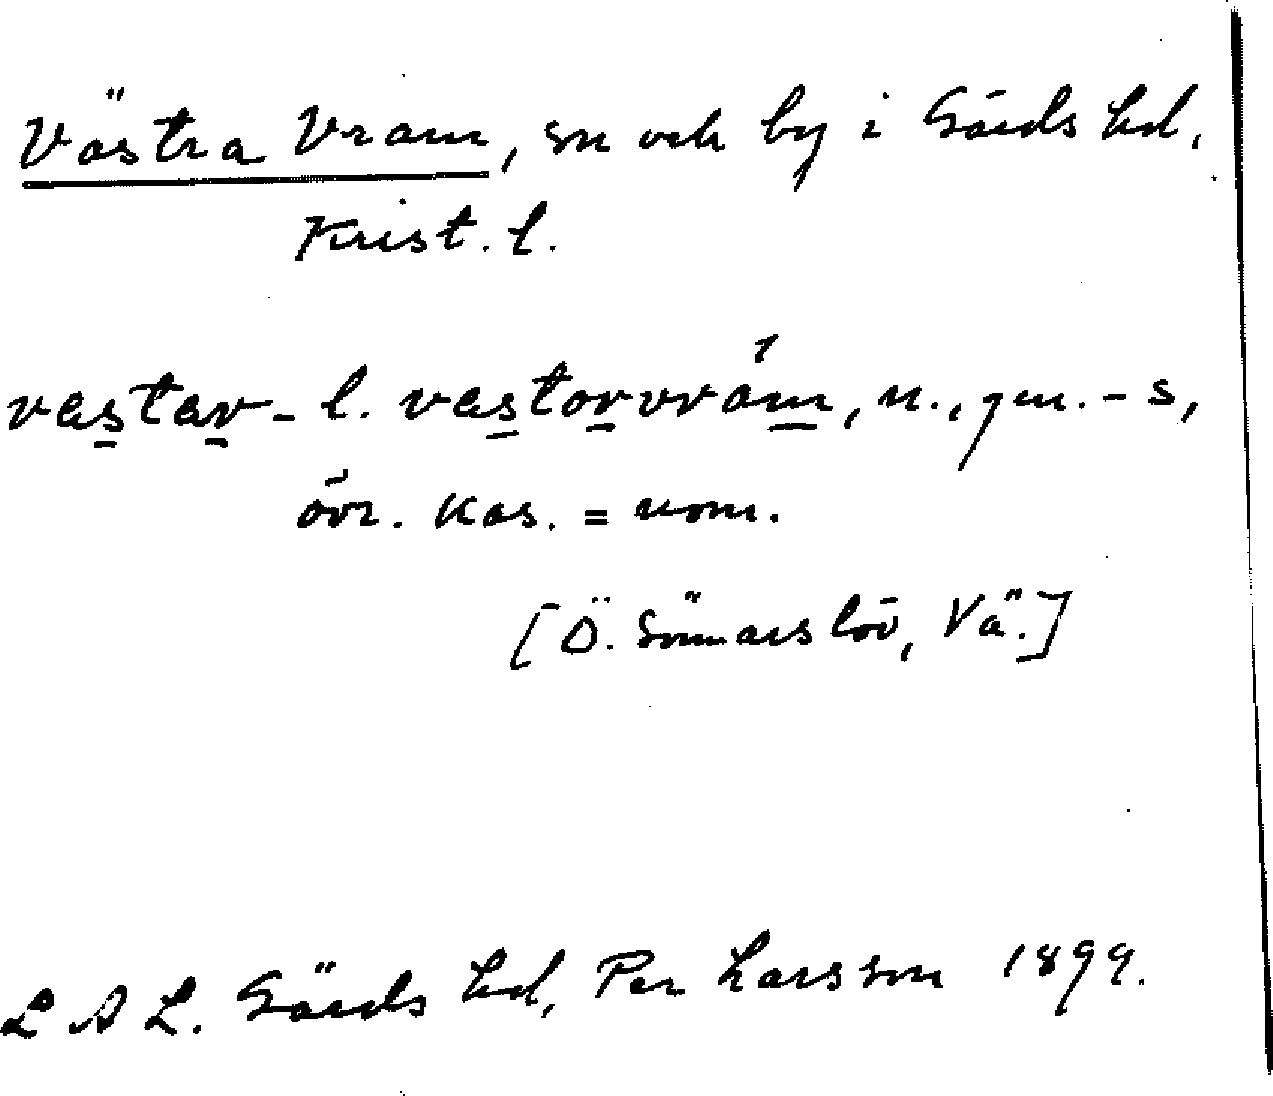 Västra Vram, sn och by i Gärds hd,
Krist. l.
vastar- l. vastorvrám, n., gen. -s,
övr. kas. = nom.
[Ö. Sönnarslöv, Vä.]
L A L. Gärds hd, Per Larsson 1899.